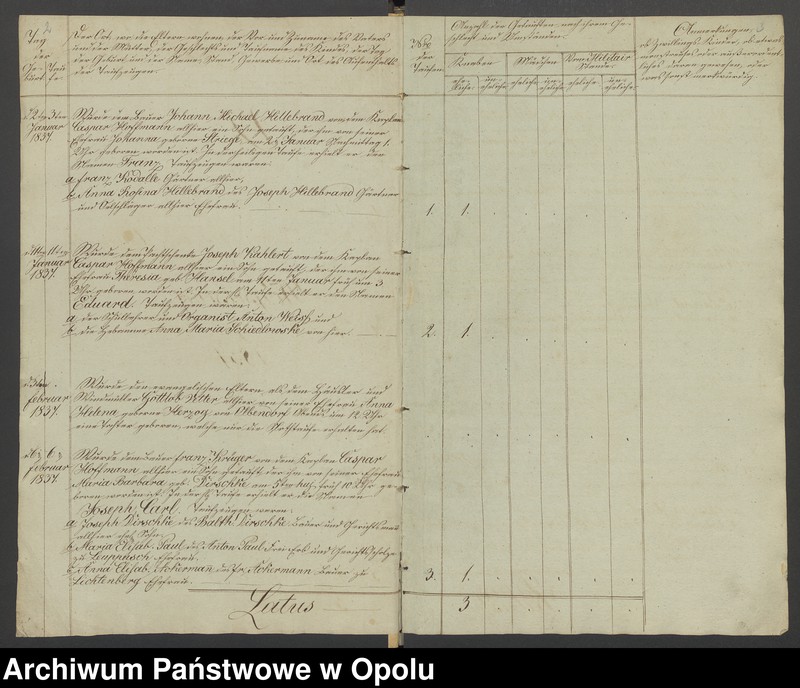 Tag der Geburt. Taufe.
Der Ort, wo die Eltern wohnen, der Vor und Zuname des Vaters
und der Mutter, der Geschlechts und Taufname des Kindes, der Tag
der Geburt und der Name, Stand, Gewerbe und Ort des Aufenthalts
der Taufzeugen.
No. der Taufen.
Anzahl der Getauften nach ihrem Geschlecht und Umständen.
Knaben Mädchen Vom Militair Stande
eheliche uneheliche eheliche uneheliche eheliche uneheliche
Anmerkungen,
ob Zwillings Kinder, ob etwas
monströses oder außerordentliches
daran gewesen, oder
was sonst merkwürdig.
Januar 1837.
Wurde dem Bauer Johann Michael Hillebrand von dem Kaplan
Caspar Hoffmann allhier ein Sohn getauft, der ihm von seiner
Ehefrau Johanna geborne am 2ten Januar Nachmittag 1
Uhr geboren worden ist. In der heiligen Taufe erhielt er den
Namen Franz. Taufzeugen waren:
a, Franz Gärtner allhier,
b, Anna Rosina Hillebrand des Joseph Hillebrand Gärtner
und allhier Ehefrau.
1. 1.
11ten Januar 1837.
Wurde dem Joseph Kahlert von dem Kaplan
Caspar Hoffmann allhier ein Sohn getauft, der ihm von seiner
Ehefrau Theresia geb. Hansel am 11ten Januar früh um 3
Uhr geboren worden ist. In der h. Taufe erhielt er den Namen
Eduard. Taufzeugen waren:
a, der Schullehrer und Organist Anton Welz und
b, die Hebamme Anna Maria von hier.
2. 1.
Februar 1837.
Wurde den evangelischen Eltern, als dem Häusler und
Windmüller Gottlob allhier von seiner Ehefrau Anna
Helena geborne Herzog von Olbendorf um 12 Uhr
eine Tochter geboren, welche nur die Nothtaufe erhalten hat.
6 Februar 1837.
Wurde dem Bauer Franz Krüger von dem Kaplan Caspar
Hoffmann allhier ein Sohn getauft, der ihm von seiner Ehefrau
Maria Barbara geb. Dirschke am 5ten früh 10 Uhr geboren
worden ist. In der h. Taufe erhielt er die Namen
Joseph Carl. Taufzeugen waren:
a, Joseph Dirschke des Balth. Dirschke Bauer und
allhier Sohn,
b, Maria Elisab. Paul des Anton Paul und
zu Ehefrau.
c, Anna Elisab. Ackerman des Fr. Ackermann Bauer zu
Lichtenberg Ehefrau.
3. 1.
Latus
3
Archiwum Państwowe w Opolu